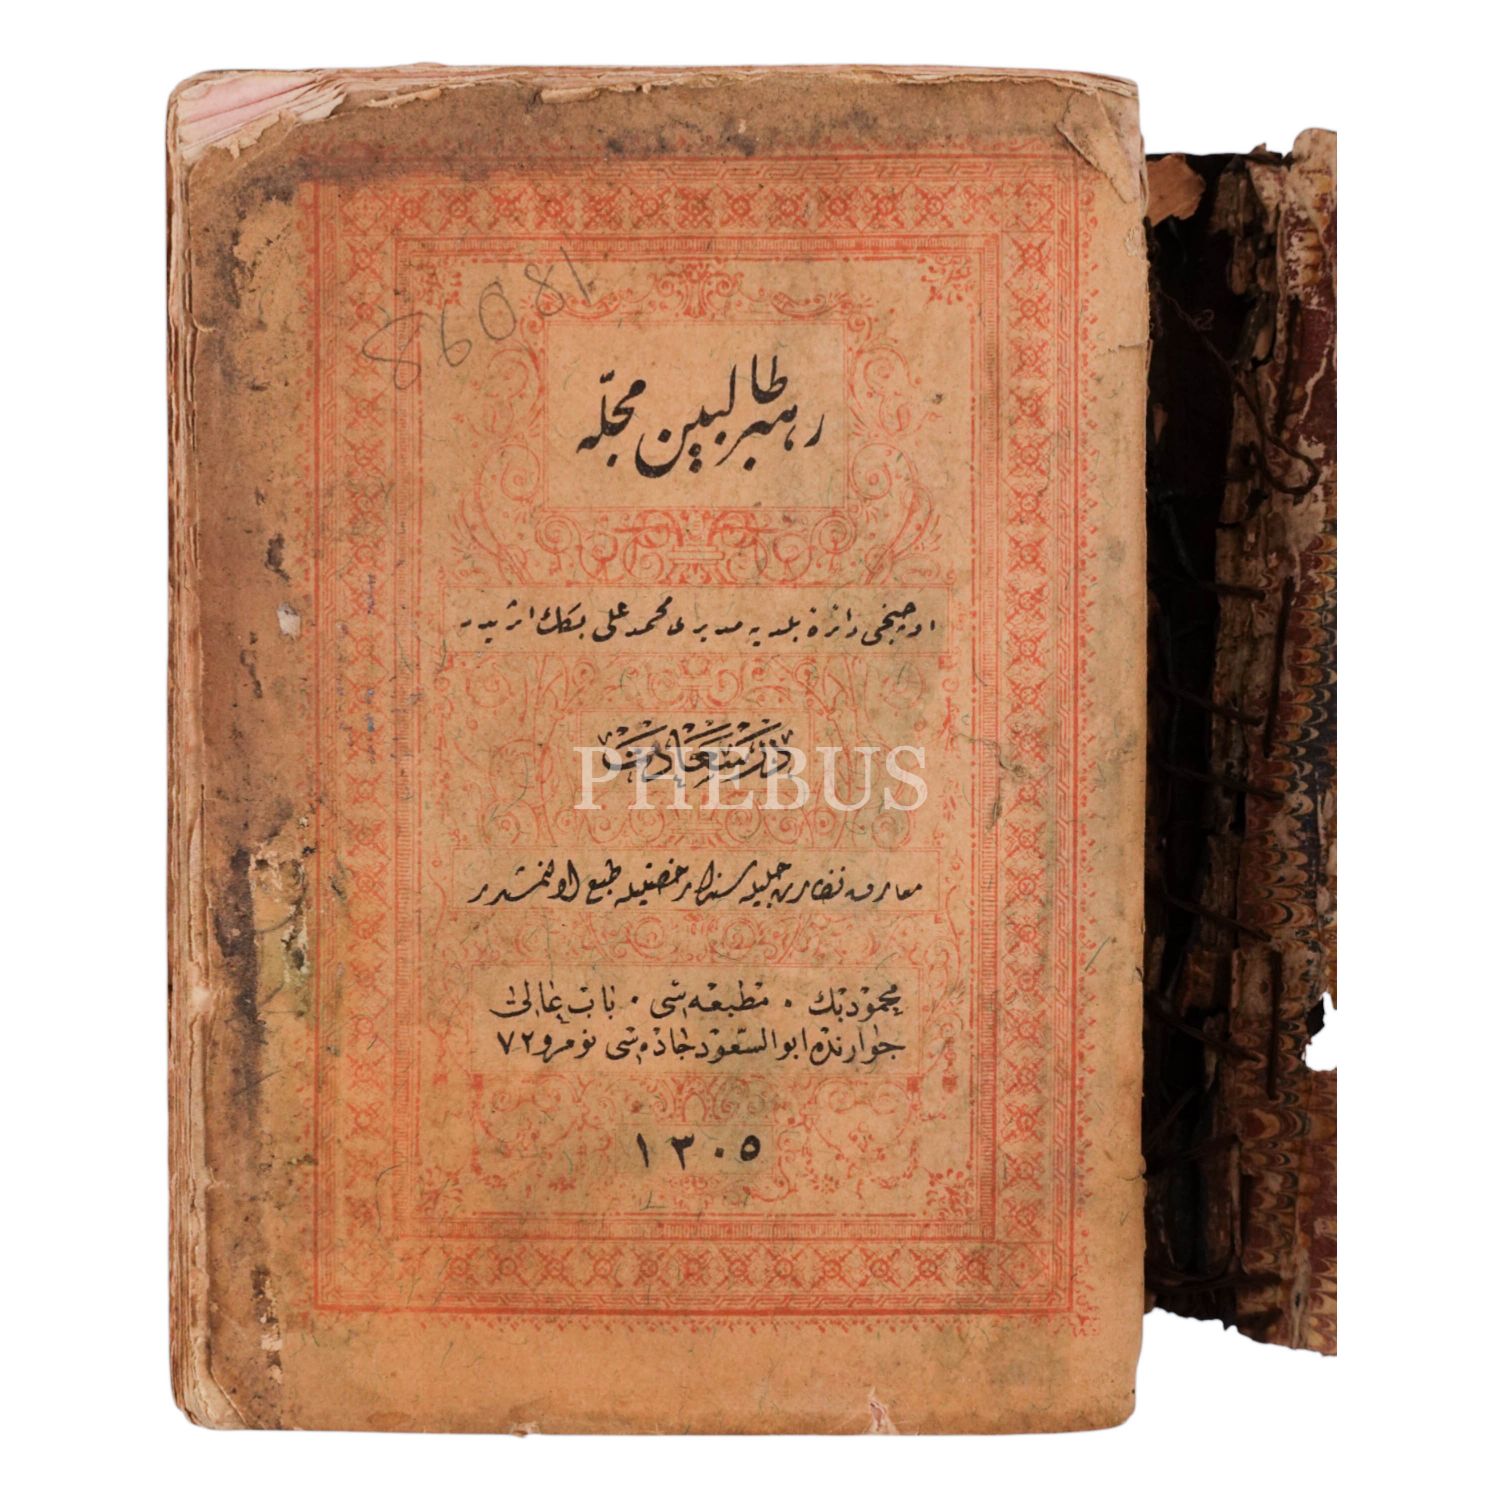 86098
1
رهبر طالبين مجله
اوچنجى دائرۀ بلديه مديرى محمد على بكك اثريدر
در سعادت
PHEBUS
معارف نظارت جليله سنك رخصتيله طبع اولنمشدر
محمود بك ٠ مطبعه سى ٠ باب عالى
جوارنده ابوالسعود جاده سى نومرو ٧٢
١٣٠٥